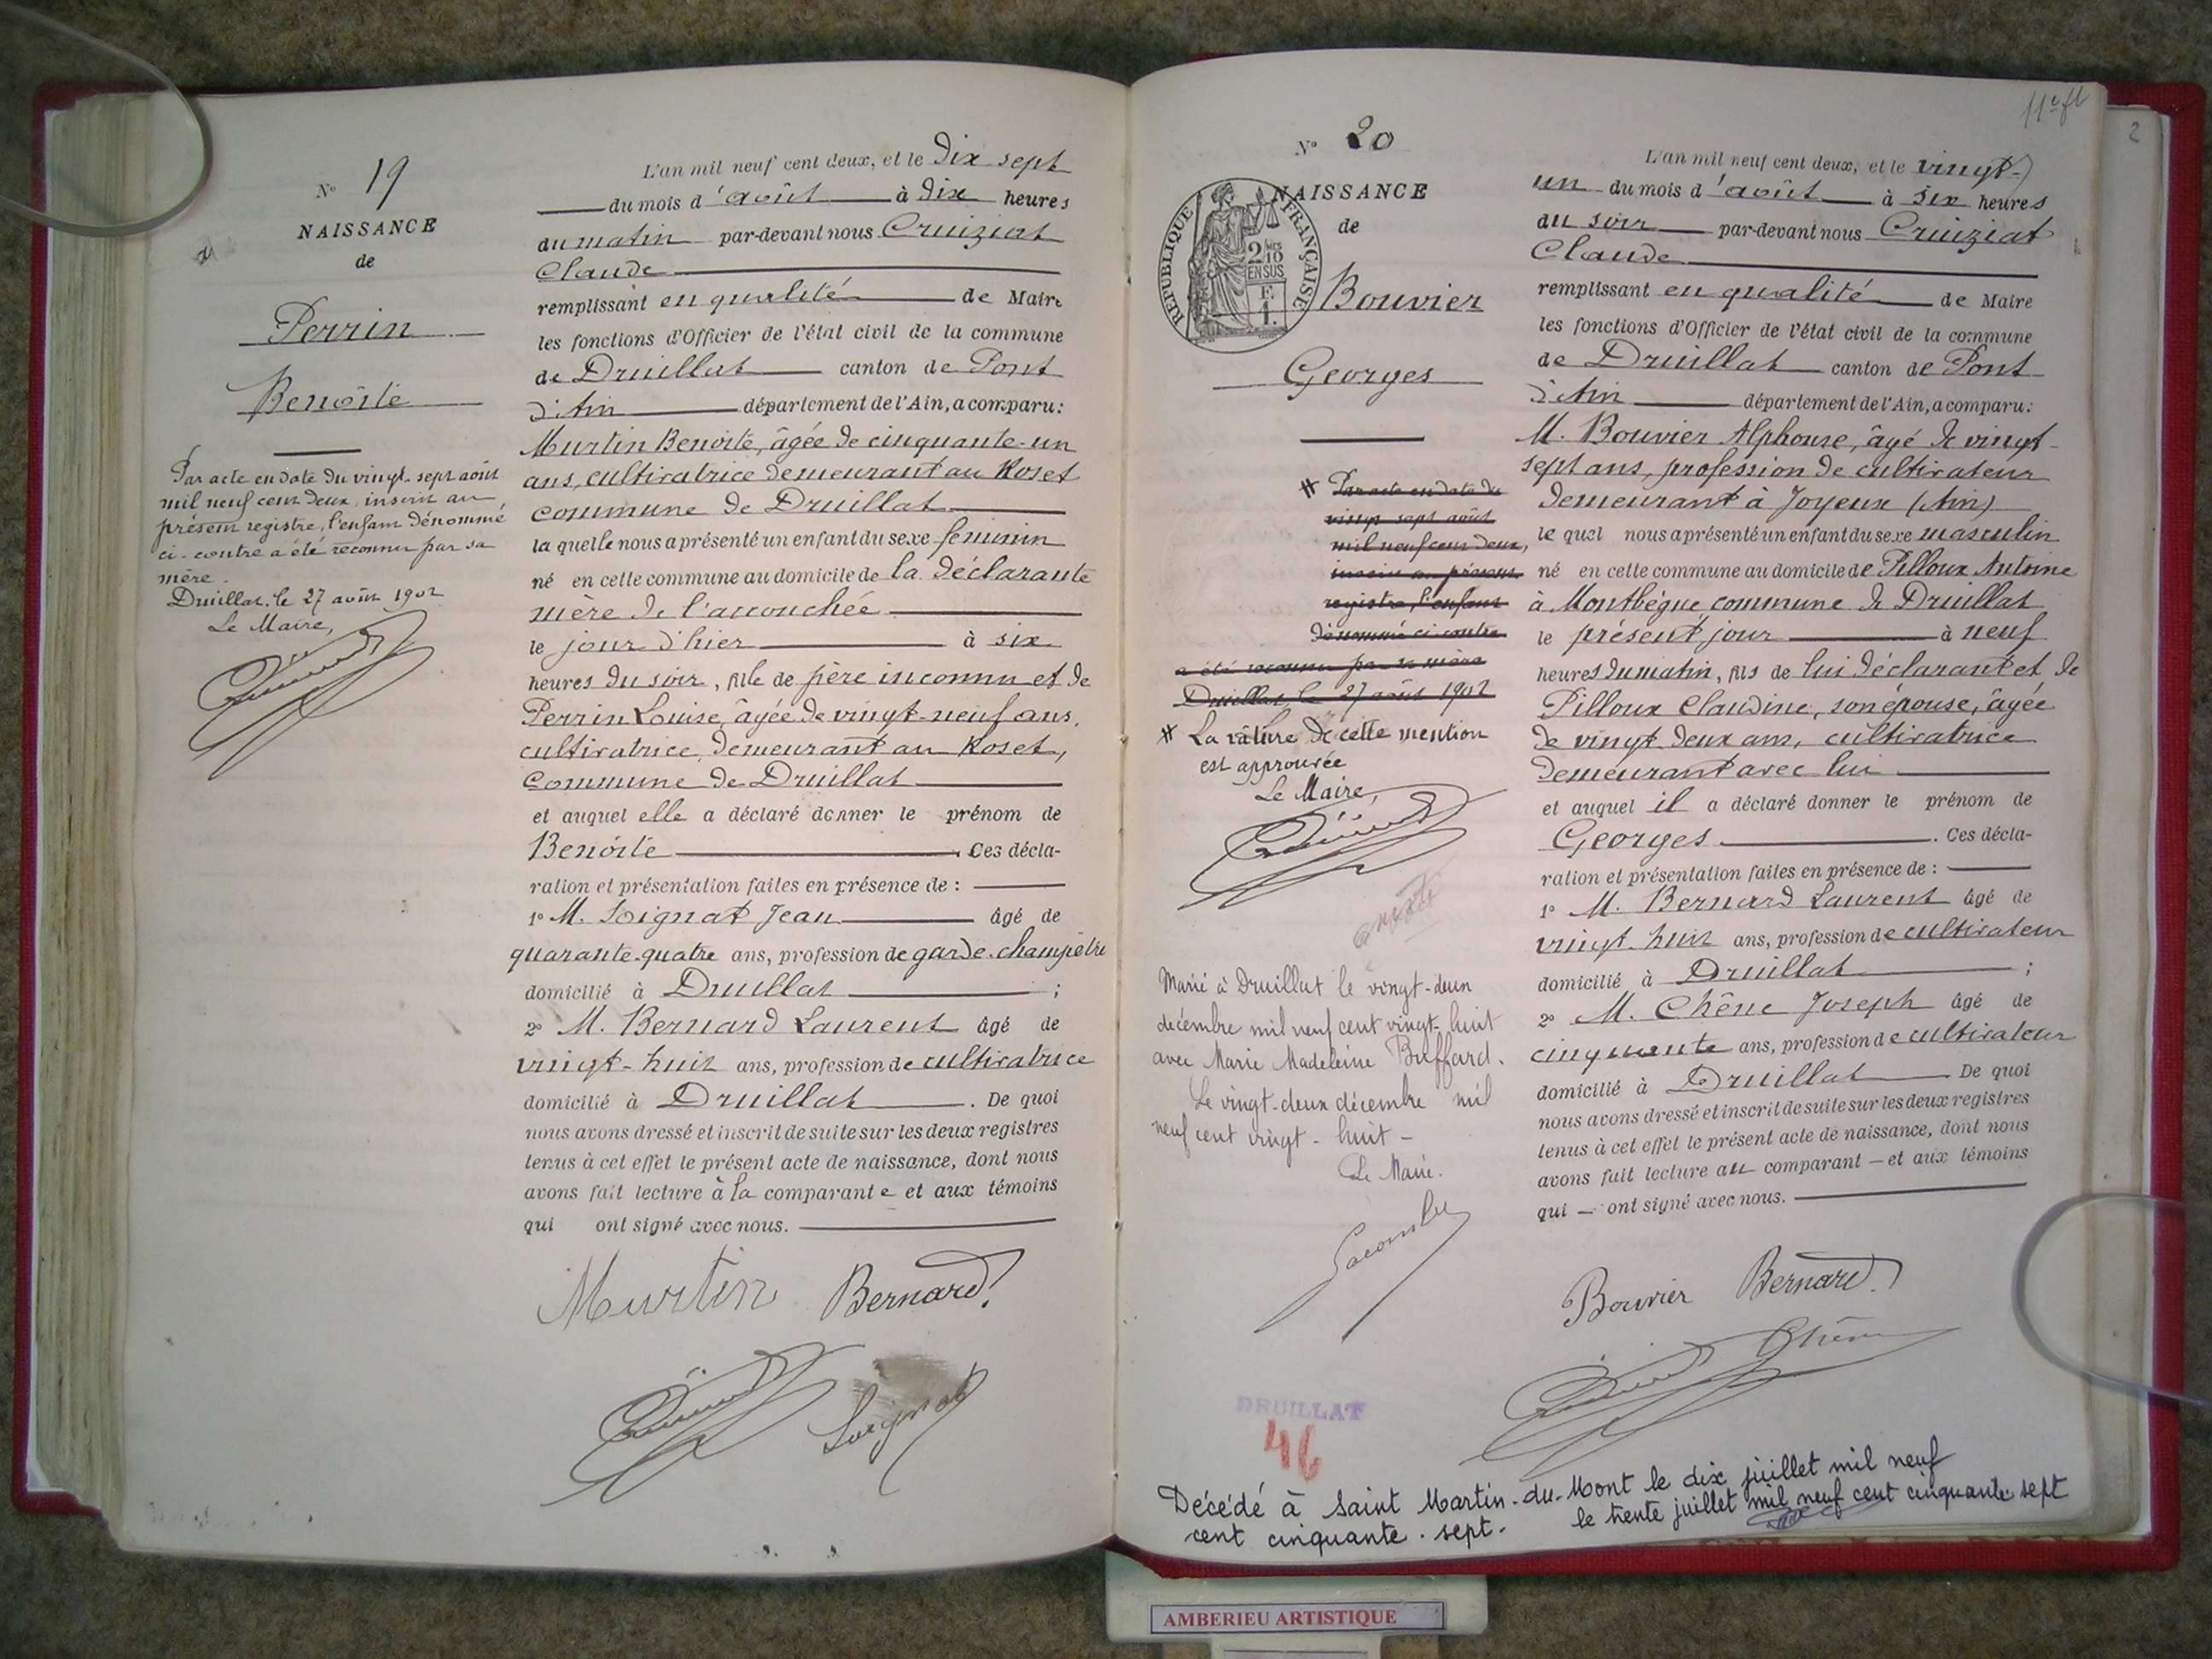 N° 19
NAISSANCE
de
Perrin
Benoîte
Par acte en date du vingt-sept août
mil neuf cent deux, inscrit au
présent registre, l'enfant dénommé
ci-contre a été reconnu par sa
mère.
Druillat, le 27 août 1902
Le Maire,
L'an mil neuf cent deux, et le dix sept
du mois d'août à dix heures
du matin par-devant nous Cruiziat
Claude
remplissant en qualité de Maire
les fonctions d'Officier de l'état civil de la commune
de Druillat canton de Pont
d'Ain département de l'Ain, a comparu:
Murtin Benoîte, âgée de cinquante-un
ans, cultivatrice demeurant au Roset
commune de Druillat
la quelle nous a présenté un enfant du sexe féminin
né en cette commune au domicile de la déclarante
mère de l'accouchée
le jour d'hier à six
heures du soir, fille de père inconnu et de
Perrin Louise, âgée de vingt-neuf ans,
cultivatrice, demeurant au Roset,
commune de Druillat
et auquel elle a déclaré donner le prénom de
Benoîte . Ces décla-
ration et présentation faites en présence de :
1° M. Soignat Jean âgé de
quarante-quatre ans, profession de garde-champêtre
domicilié à Druillat ;
2° M. Bernard Laurent âgé de
vingt-huit ans, profession de cultivatrice
domicilié à Druillat . De quoi
nous avons dressé et inscrit de suite sur les deux registres
tenus à cet effet le présent acte de naissance, dont nous
avons fait lecture à la comparante et aux témoins
qui ont signé avec nous.
Murtin Bernard
Soignat
11e ft
2
N° 20
NAISSANCE
de
RÉPUBLIQUE FRANÇAISE
2/10
EN SUS
Bouvier
Georges
# Par acte en date du
vingt sept août
mil neuf cent deux,
inscrit au présent
registre, l'enfant
dénommé ci-contre
a été reconnu par sa mère
Druillat, le 27 août 1902
# La râture de cette mention
est approuvée
Le Maire,
Marié à Druillat le vingt-deux
décembre mil neuf cent vingt-huit
avec Marie Madeleine Buffard.
Le vingt-deux décembre mil
neuf cent vingt-huit -
Le Maire.
L'an mil neuf cent deux, et le vingt-
un du mois d'août à six heures
du soir par-devant nous Cruiziat
Claude
remplissant en qualité de Maire
les fonctions d'Officier de l'état civil de la commune
de Druillat canton de Pont
d'Ain département de l'Ain, a comparu:
M. Bouvier Alphonse, âgé de vingt-
sept ans, profession de cultivateur
demeurant à Joyeux (Ain)
le quel nous a présenté un enfant du sexe masculin
né en cette commune au domicile de Pilloux Antoine
à Montbègue, commune de Druillat
le présent jour à neuf
heures du matin, fils de lui déclarant et de
Pilloux Claudine, son épouse, âgée
de vingt deux ans, cultivatrice
demeurant avec lui
et auquel il a déclaré donner le prénom de
Georges . Ces décla-
ration et présentation faites en présence de :
1° M. Bernard Laurent âgé de
vingt-huit ans, profession de cultivateur
domicilié à Druillat ;
2° M. Chêne Joseph âgé de
cinquante ans, profession de cultivateur
domicilié à Druillat De quoi
nous avons dressé et inscrit de suite sur les deux registres
tenus à cet effet le présent acte de naissance, dont nous
avons fait lecture au comparant et aux témoins
qui ont signé avec nous.
Bouvier Bernard
Chêne
DRUILLAT
46
Décédé à Saint Martin-du-Mont le dix juillet mil neuf
cent cinquante-sept. le trente juillet mil neuf cent cinquante sept
AMBERIEU ARTISTIQUE